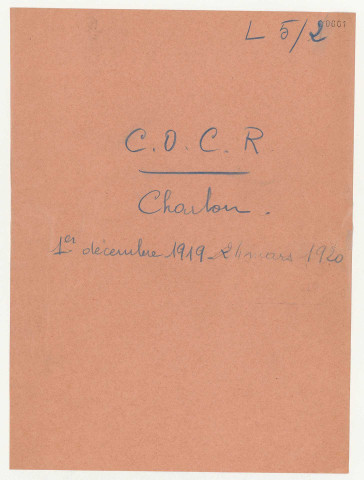 L 5/2 0001
C.O.C.R
Charbon.
1er décembre 1919 - 24 mars 1920